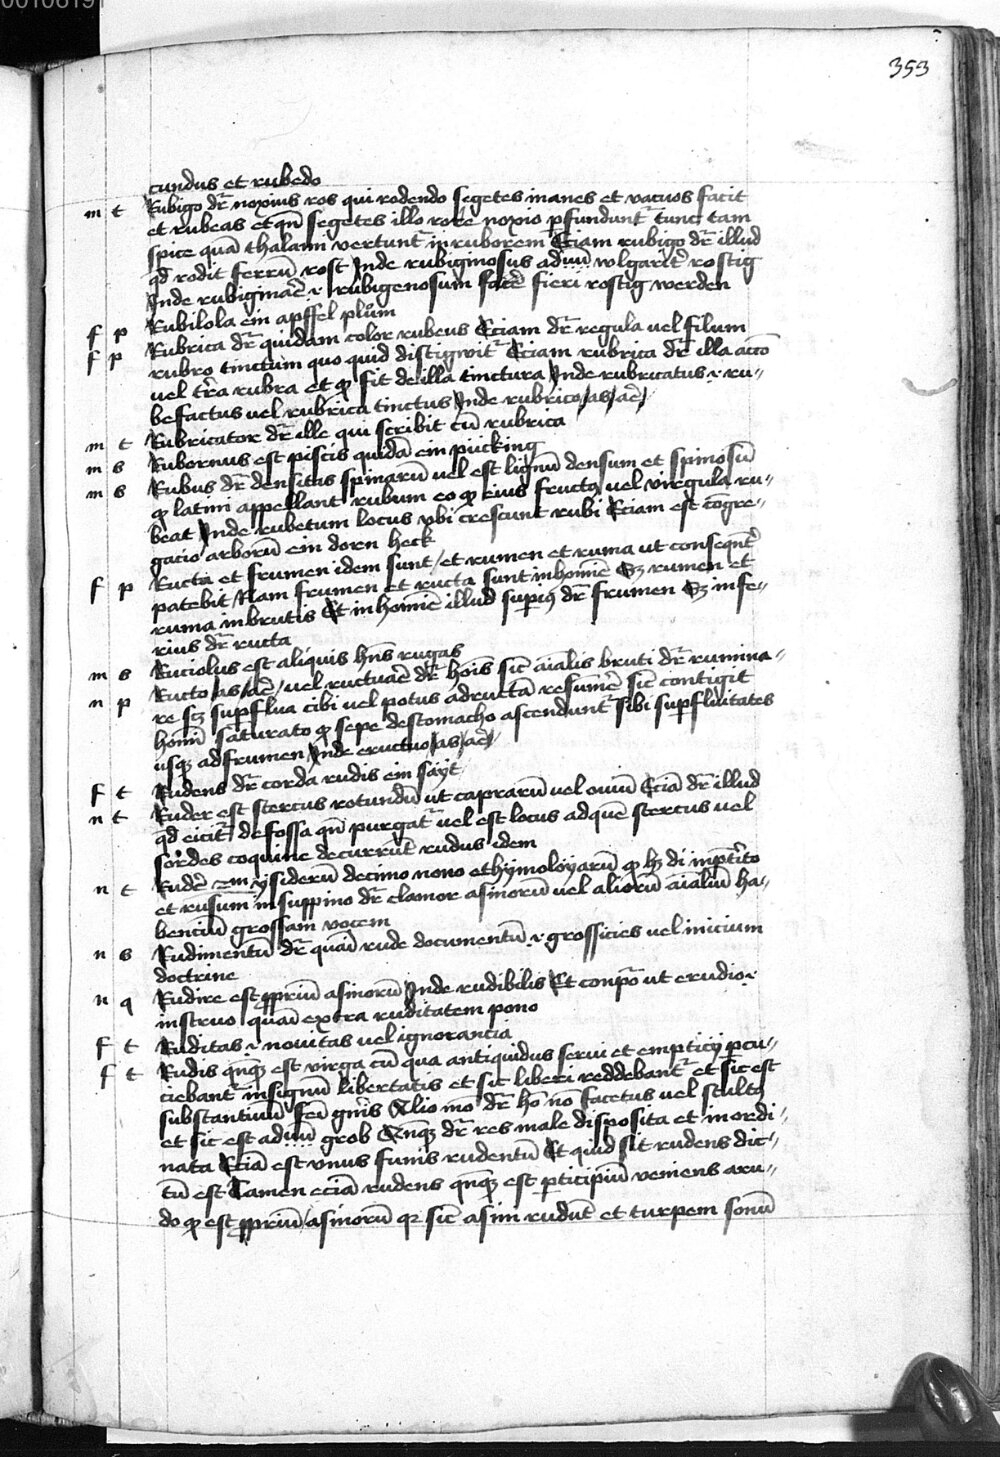 353
cundus et rubedo
m t Rubigo dr̄ noxius ros qui rodendo segetes inanes et vacuos facit
et rubeas et qn̄ segetes illo rore noxio ꝑfundunt᷑ tunc tam
spice quā thalami vertunt᷑ in ruborem Eciam rubigo dr̄ illud
qd̄ rodit ferrū rost Inde rubiginosus adiūū wlgarit᷑ rostig
Inde rubiginar̄e ·i· rubigenosum facē fieri rostig werden
f p Rubilola ein apffel plům
f p Rubrica dr̄ quidam color rubeus Eciam dr̄ regula uel filum
rubro tinctum quo quid distigwit᷑ Eciam rubrica dr̄ illa
vel t̄ra rubra et ꝙ fit de illa tinctura Inde rubricatus ·i· ru-
befactus uel rubrica tinctus Inde rubrico/as/ar̄e/
m t Rubricator dr̄ ille qui scribit cū rubrica
m s Rubornus est piscis quidā ein pücking
m s Rubus dr̄ densitas spinarū uel est lignū densum et spinosū
ꝙ latini appellant rubum eo ꝙ eius fructꝰ uel virgula ru-
beat Inde rubetum locus vbi crescunt rubi Eciam est cōgre-
gacio arborū ein doren heck
f p Ructa et frumen idem sunt/et rumen et ruma ut consequent᷑
patebit Nam frumen et ructa sunt in hoīne Sꝫ rumen et
ruma in brutis Et in homīe illud supiꝰ dr̄ frumen Sꝫ infe-
rius dr̄ ructa
m s Ruciolus est aliquis hn̄s rugas
n p Ructo/as/ar̄e/uel ructuar̄e dr̄ hoīs sic̄ aīalis bruti dr̄ rumina-
re scꝫ supflua cibi uel potus ad ructā resumē sic̄ contigit
homīni saturato ꝙ sepe de stomacho ascendunt᷑ sibi supfluitates
usqꝫ ad frumen Inde eructuo/as/ar̄e/
f t Rudens dr̄ corda rudis ein sayt
n t Ruder est stercus rotundū ut caprarū uel ouiū Eciā dr̄ illud
qd̄ eicit᷑ de fossa qn̄ purgat᷑ uel est locus ad quē stercus uel
sordes coquine decurrūt rudus idem
n t Rudē ysiderū decimo nono ethymoloyarū ꝙ hꝫ di
et rusum in suppino dr̄ clamor asinorū uel aliorū aīaliū ha-
benciū grossam vocem
n s Rudimentū dr̄ quasi rude documentū ·i· grossicies uel inicium
doctrine
n q Rudire est ꝓpriū asinorū Inde rudibilis Et conpōr ut erudio ·i·
instruo quasi extra ruditatem pono
f t Ruditas ·i· nouitas uel ignorancia
f t Rudis qn̄qꝫ est virga cū qua antiquidus serui et empticij ꝑcu-
ciebant᷑ in signū libertatis et sic liberi reddebant᷑ et sic est
substantiuū fēi gn̄ris Alio mō dr̄ hō nō facetus vel stultꝰ
et sic est adiūū grob Qn̄qꝫ dr̄ res male disposita et inordi-
nata Eciā est vnus funis rudentū Et quid sit rudens dic-
tū est Tamen eciā rudens qn̄qꝫ est ꝑticipiū veniens a ru-
do ꝙ est ꝓpriū/asinorū qꝛ sic̄ asini rudūt et turpem sonū